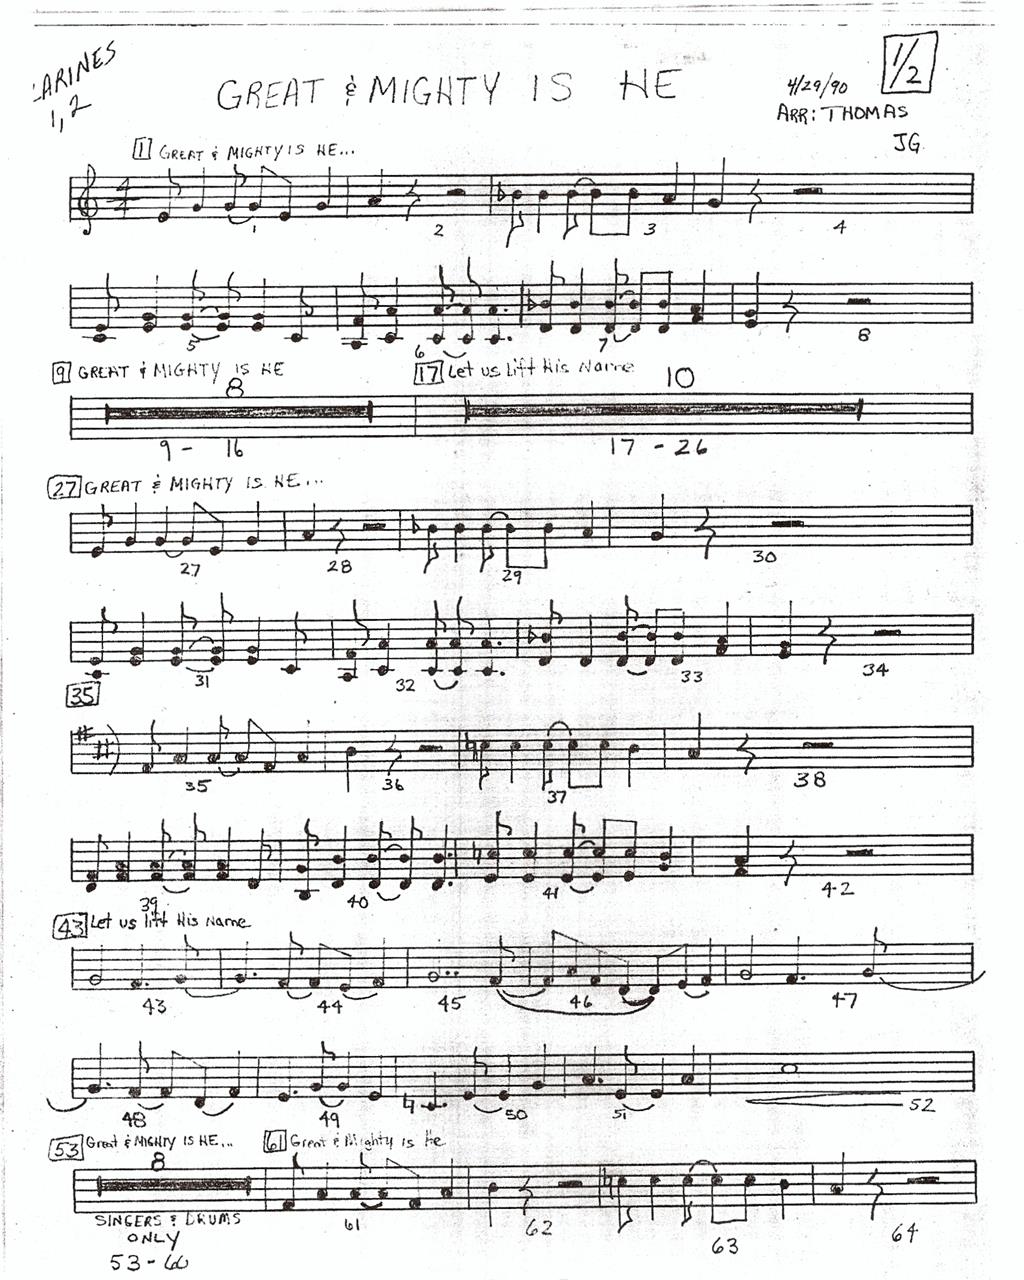 ARINES
1,2
GREAT & MIGHTY IS HE
4/29/90
ARR: THOMAS
JG
1/2
1 GREAT & MIGHTY IS HE...
4
1 2 3 4
5 6 7 8
9 GREAT & MIGHTY IS HE
17 Let us Lift His Name
8 10
9 - 16 17 - 26
27 GREAT & MIGHTY IS HE...
27 28 29 30
31 32 33 34
35
35 36 37 38
39 40 41 42
43 Let us lift His Name
43 44 45 46 47
48 49 50 51 52
53 Great & MIGHTY IS HE...
61 Great & Mighty is He
8
SINGERS & DRUMS
ONLY
53 - 60
61 62 63 64